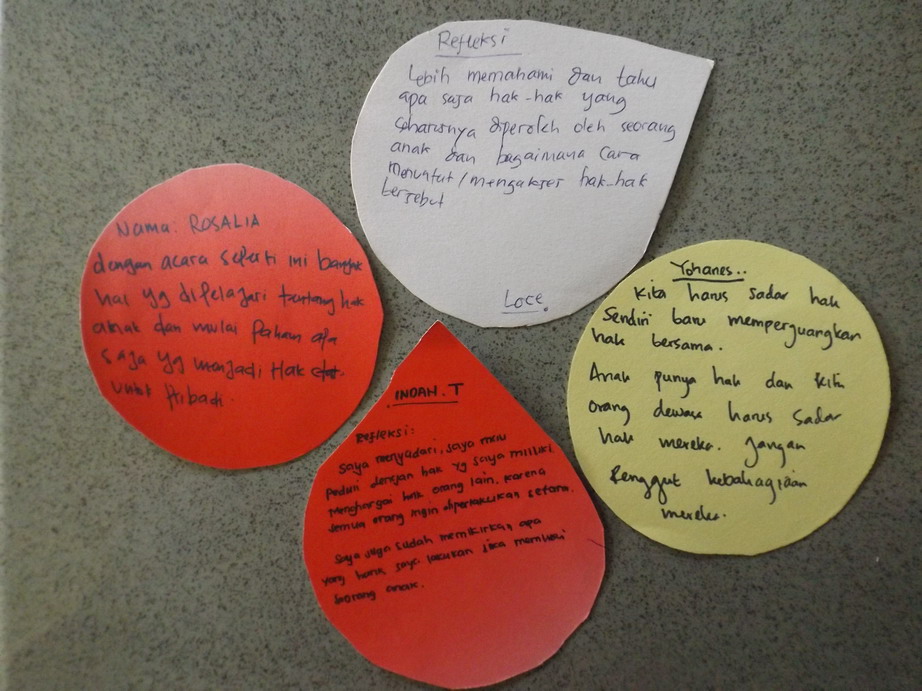 Refleksi
Lebih memahami dan tahu
apa saja hak-hak yang
seharusnya diperoleh oleh seorang
anak dan bagaimana cara
menuntut/mengakses hak-hak
tersebut
Loce.
Nama: ROSALIA
dengan acara seperti ini banyak
hal yg dipelajari tentang hak
anak dan mulai paham apa
saja yg menjadi Hak
untuk Pribadi.
INDAH.T
Refleksi:
Saya menyadari, saya mau
peduli dengan hak yg saya miliki
menghargai hak orang lain, karena
semua orang ingin diperlakukan setara.
Saya juga sudah memikirkan, apa
yang harus saya lakukan jika memiliki
seorang anak.
Yohanes..
Kita harus sadar hak
Sendiri baru memperjuangkan
hak bersama.
Anak punya hak dan kita
orang dewasa harus sadar
hak mereka. Jangan
Renggut kebahagiaan
mereka.